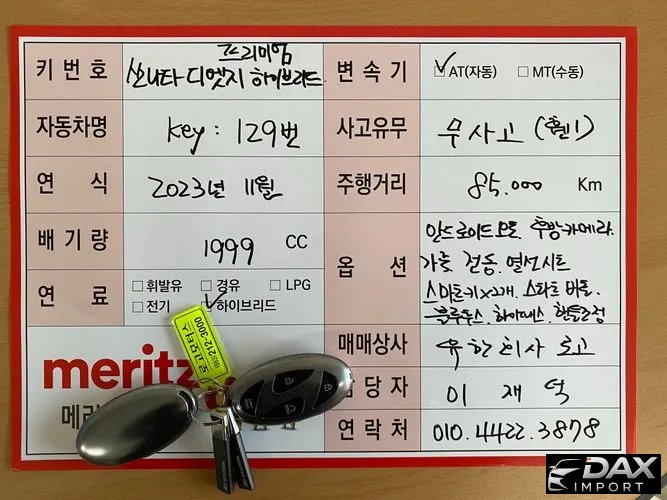 키 번 호
프리미엄
쏘나타 디엣지 하이브리드
변 속 기
AT(자동) MT(수동)
자동차명
Key : 129번
사고유무
무사고 (휀1)
연 식
2023년 11월
주행거리
85.000 Km
배 기 량
1999 CC
옵 션
후방카메라.
가죽 전동. 열선시트
스마트키x2개. 스타트 버튼.
블루투스. 하이패스. 핸들조정
연 료
휘발유 경유 LPG
전기 하이브리드
매매상사
유한회사 로고
당 자
이 재 덕
연 락 처
010.4422.3878
meritz
메리
로고모터스
212-3000
DAX
IMPORT